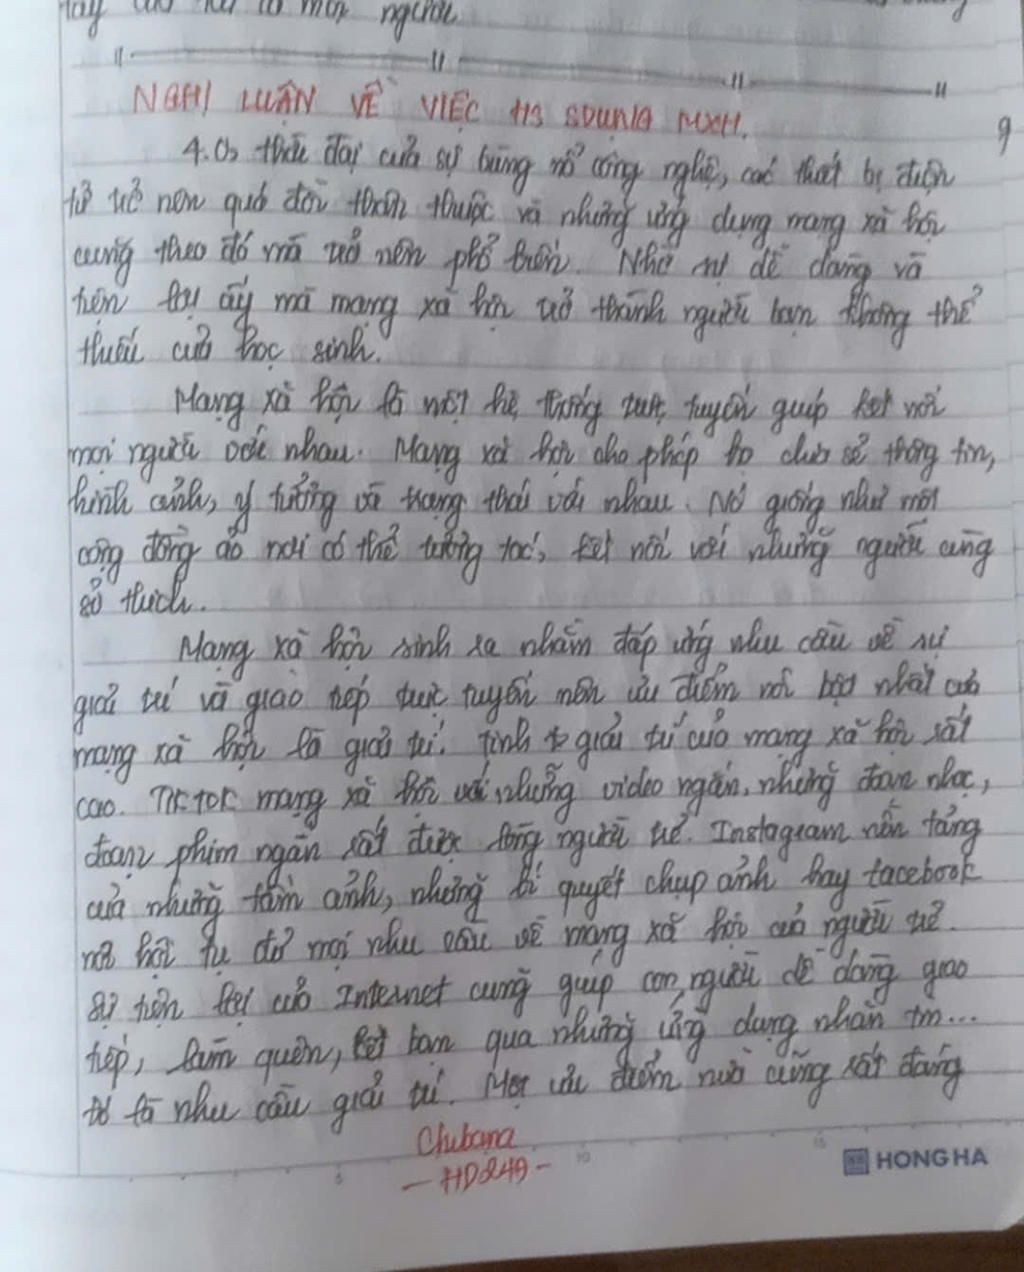 người
NGHỊ LUẬN VỀ VIỆC HS SDỤNG MXH.
4.0, thời đại của sự bùng nổ công nghệ, các thiết bị điện
tử trở nên quá đỗi thân thuộc và những ứng dụng mạng xã hội
cũng theo đó mà trở nên phổ biến. Nhờ sự dễ dàng và
tiện lợi ấy mà mạng xã hội trở thành người bạn không thể
thiếu của học sinh.
Mạng xã hội là một hệ thống trực tuyến giúp kết nối
mọi người với nhau. Mạng xã hội cho phép họ chia sẻ thông tin,
hình ảnh, ý tưởng và trạng thái với nhau. Nó giống như một
cộng đồng ảo nơi có thể tương tác, kết nối với những người cùng
sở thích.
Mạng xã hội sinh ra nhằm đáp ứng nhu cầu về sự
giải trí và giao tiếp trực tuyến nên ưu điểm nổi bật nhất của
mạng xã hội là giải trí. Tính giải trí của mạng xã hội rất
cao. TikTok mạng xã hội với những video ngắn, những đoạn nhạc,
đoạn phim ngắn rất được lòng người trẻ. Instagram nền tảng
của những tấm ảnh, những bí quyết chụp ảnh hay facebook
nơi hội tụ đủ mọi nhu cầu về mạng xã hội của người trẻ.
Sự tiện lợi của Internet cũng giúp con người dễ dàng giao
tiếp, làm quen, kết bạn qua những ứng dụng nhắn tin...
đó là nhu cầu giải trí. Một ưu điểm nữa cũng rất đáng
Chubana
- HD249 -
HONG HA